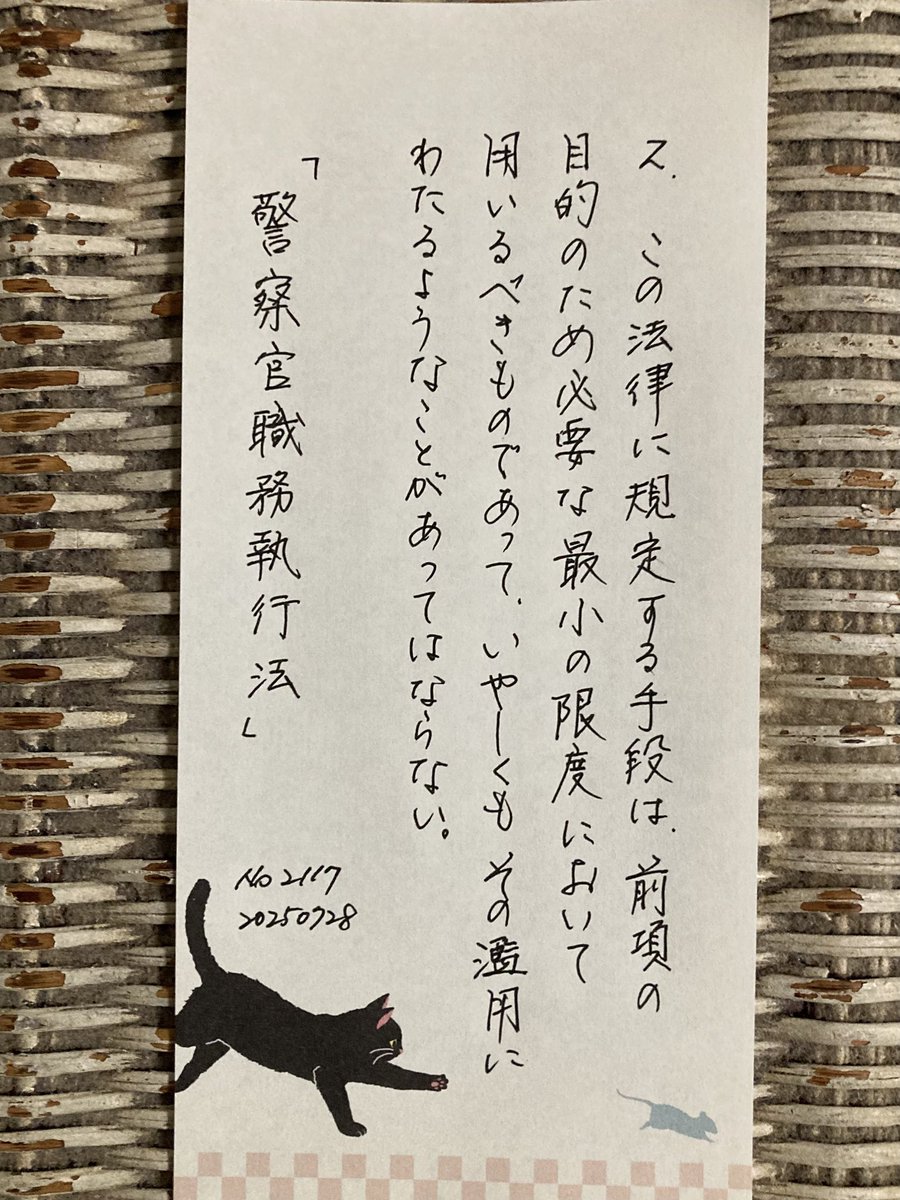 2. この法律に規定する手段は、前項の
目的のため必要な最小の限度において
用いるべきものであって、いやしくもその濫用に
わたるようなことがあってはならない。
「警察官職務執行法」
No 2117
20250728